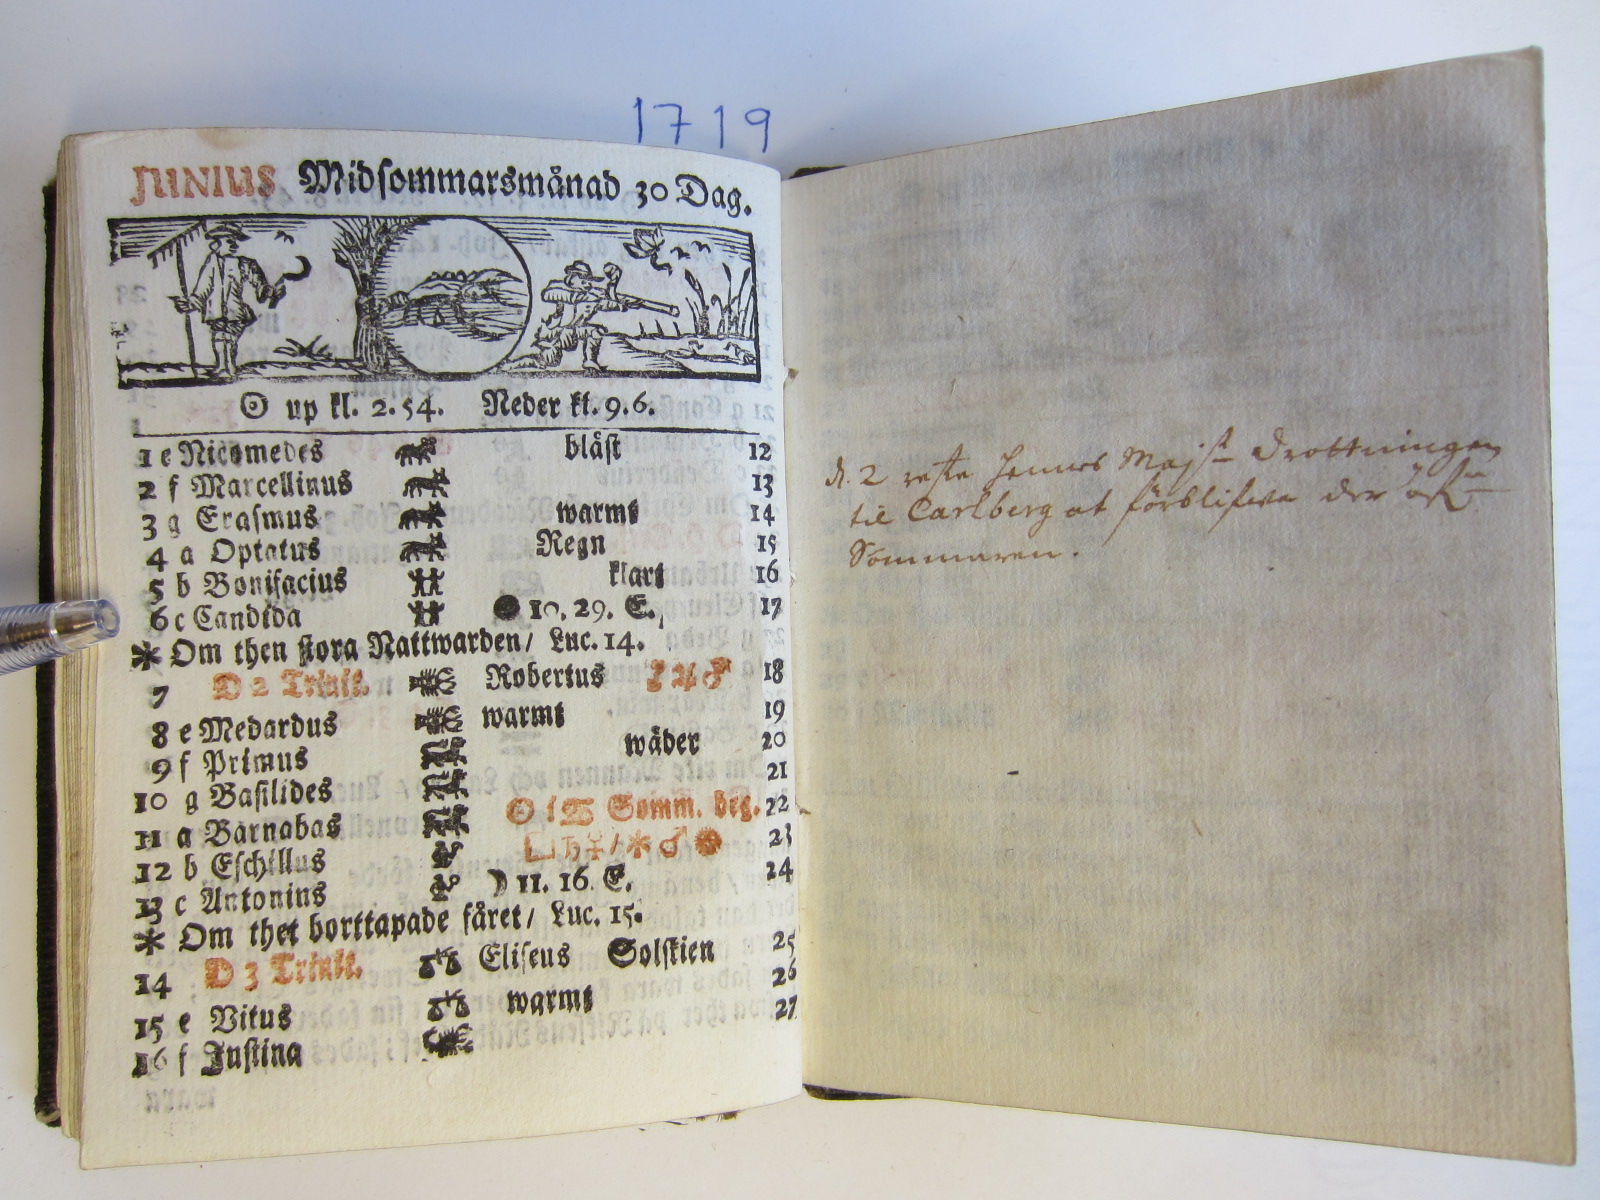 1719
JUNIUS Midsommarsmånad 30 Dag.
☉ up kl. 2.54. Neder kl. 9.6.
1 e Nicomedes blåst 12
2 f Marcellinus 13
3 g Erasmus warmt 14
4 a Optatus Regn 15
5 b Bonifacius klart 16
6 c Candida ● 10. 29. E. 17
* Om then stora Nattwarden / Luc. 14.
7 D 2 Trinit. Robertus ♃ ♂ 18
8 e Medardus warmt 19
9 f Primus wäder 20
10 g Basilides 21
11 a Barnabas ☉ i ♋ Somm. beg. 22
12 b Eschillus □ ♄ ☿ / * ♂ 23
13 c Antonius ☽ 11. 16. E. 24
* Om thet borttapade fåret / Luc. 15.
14 D 3 Trinit. Eliseus Solskien 25
15 e Vitus warmt 26
16 f Justina 27
d. 2 reste Hennes Maj:st Drottningen
til Carlberg at förblifwa der öf:r
Sommaren.